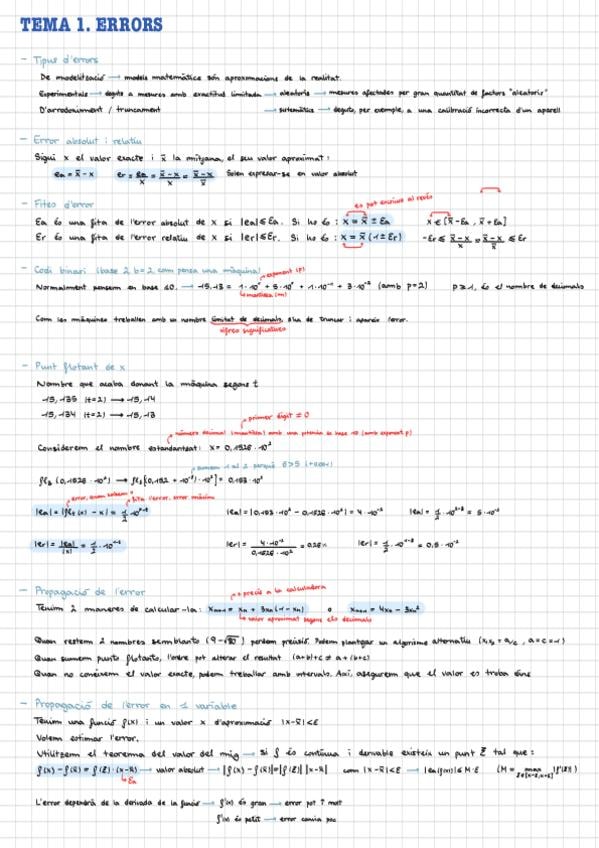 TEMA 1. ERRORS
- Tipus d'errors
De modelització → models matemàtics són aproximacions de la realitat.
Experimentals → deguts a mesures amb exactitud limitada → aleatoris → mesures afectades per gran quantitat de factors "aleatoris"
D'arrodoniment / truncament → sistemàtics → deguts, per exemple, a una calibració incorrecta d'un aparell
- Error absolut i relatiu
Sigui x el valor exacte i x̄ la mitjana, el seu valor aproximat:
ea = x̄ - x    er = ea/x = (x̄-x)/x = (x̄-x)/x̄    Solen expressar-se en valor absolut
- Fites d'error
es pot escriure al revés
Ea és una fita de l'error absolut de x si |ea| ≤ Ea. Si ho és: x = x̄ ± Ea    x ∈ [x̄ - Ea, x̄ + Ea]
Er és una fita de l'error relatiu de x si |er| ≤ Er. Si ho és: x = x̄ (1 ± Er)    -Er ≤ (x̄-x)/x = (x̄-x)/x̄ ≤ Er
- Codi binari (base 2, b=2 com pensa una màquina)
exponent (p)
Normalment pensem en base 10. → 15,13 = 1·10¹ + 5·10⁰ + 1·10⁻¹ + 3·10⁻² (amb p=2)    p≥1, és el nombre de decimals
mantissa (m)
Com les màquines treballen amb un nombre limitat de decimals, s'ha de truncar i apareix l'error.
xifres significatives
- Punt flotant de x
Nombre que acaba donant la màquina segons t
15,135 (t=2) → 15,14
15,134 (t=2) → 15,13
primer dígit ≠ 0
número decimal (mantissa) amb una potència de base 10 (amb exponent p)
Considerem el nombre estandarditzat: x = 0,1526·10²
sumem 1 al 2 perquè 6>5 (+0,001)
fl₃ (0,1526·10²) → fl₃[(0,152 + 10⁻³)·10²] = 0,153·10²
error, quan sabem x    fita l'error, error màxim
|ea| = |flt(x) - x| = 1/2·10^(p-t)    |ea| = |0,153·10² - 0,1526·10²| = 4·10⁻²    |ea| = 1/2·10^(2-3) = 5·10⁻²
|er| = |ea|/|x| = 1/2·10^(1-t)    |er| = 4·10⁻²/0,1526·10² = 0,26%    |er| = 1/2·10^(1-3) = 0,5·10⁻²
- Propagació de l'error
precís a la calculadora
Tenim 2 maneres de calcular-la: xn+1 = xn + 3xn(1-xn)    o    xn+1 = 4xn - 3xn²
valor aproximat segons els decimals
Quan restem 2 nombres semblants (9-√80) perdem precisió. Podem plantejar un algorisme alternatiu (x₁x₂ = a/c, a=c=-1)
Quan sumem punts flotants, l'ordre pot alterar el resultat (a+b)+c ≠ a+(b+c)
Quan no coneixem el valor exacte, podem treballar amb intervals. Així, assegurem que el valor es troba dins
- Propagació de l'error en 1 variable
Tenim una funció f(x) i un valor x d'aproximació |x-x̄| < E
Volem estimar l'error.
Utilitzem el teorema del valor del mig → si f és contínua i derivable existeix un punt Z tal que:
f(x) - f(x̄) = f(Z)·(x-x̄) → valor absolut → |f(x) - f(x̄)| = |f(Z)| |x-x̄|    com |x-x̄| < E → |ea(f(x))| ≤ M·E
Ea
L'error dependrà de la derivada de la funció → f'(x) és gran → error pot ↑ molt
f'(x) és petit → error canvia poc